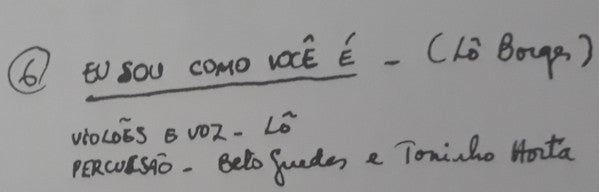 6 EU SOU COMO VOCÊ É - (Lô Borges)
VIOLÕES E VOZ - LÔ
PERCUSSÃO - Beto Guedes e Toninho Horta